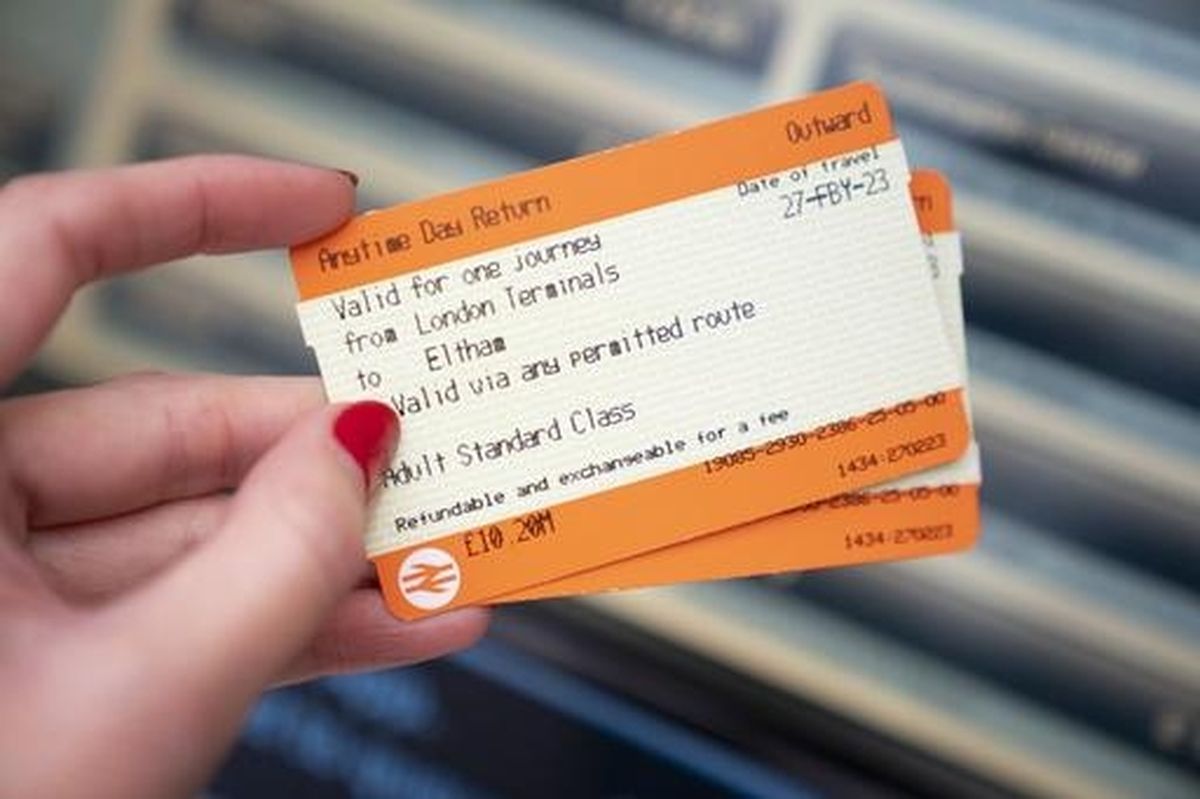 Outward
Anytime Day Return
Date of travel
27-FBY-23
Valid for one journey
from London Terminals
to Eltham
Valid via any permitted route
Adult Standard Class
Refundable and exchangeable for a fee
19085-2930-2386-25-05-00
£10.20M
1434:270223
2386-25-05-00
1434:270223